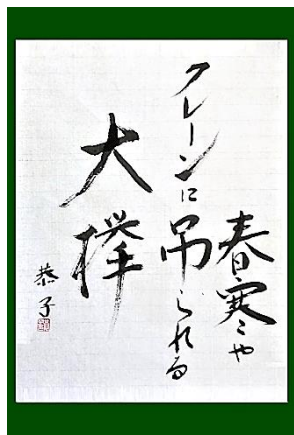 春寒や
クレーンに吊られる
大欅
恭子